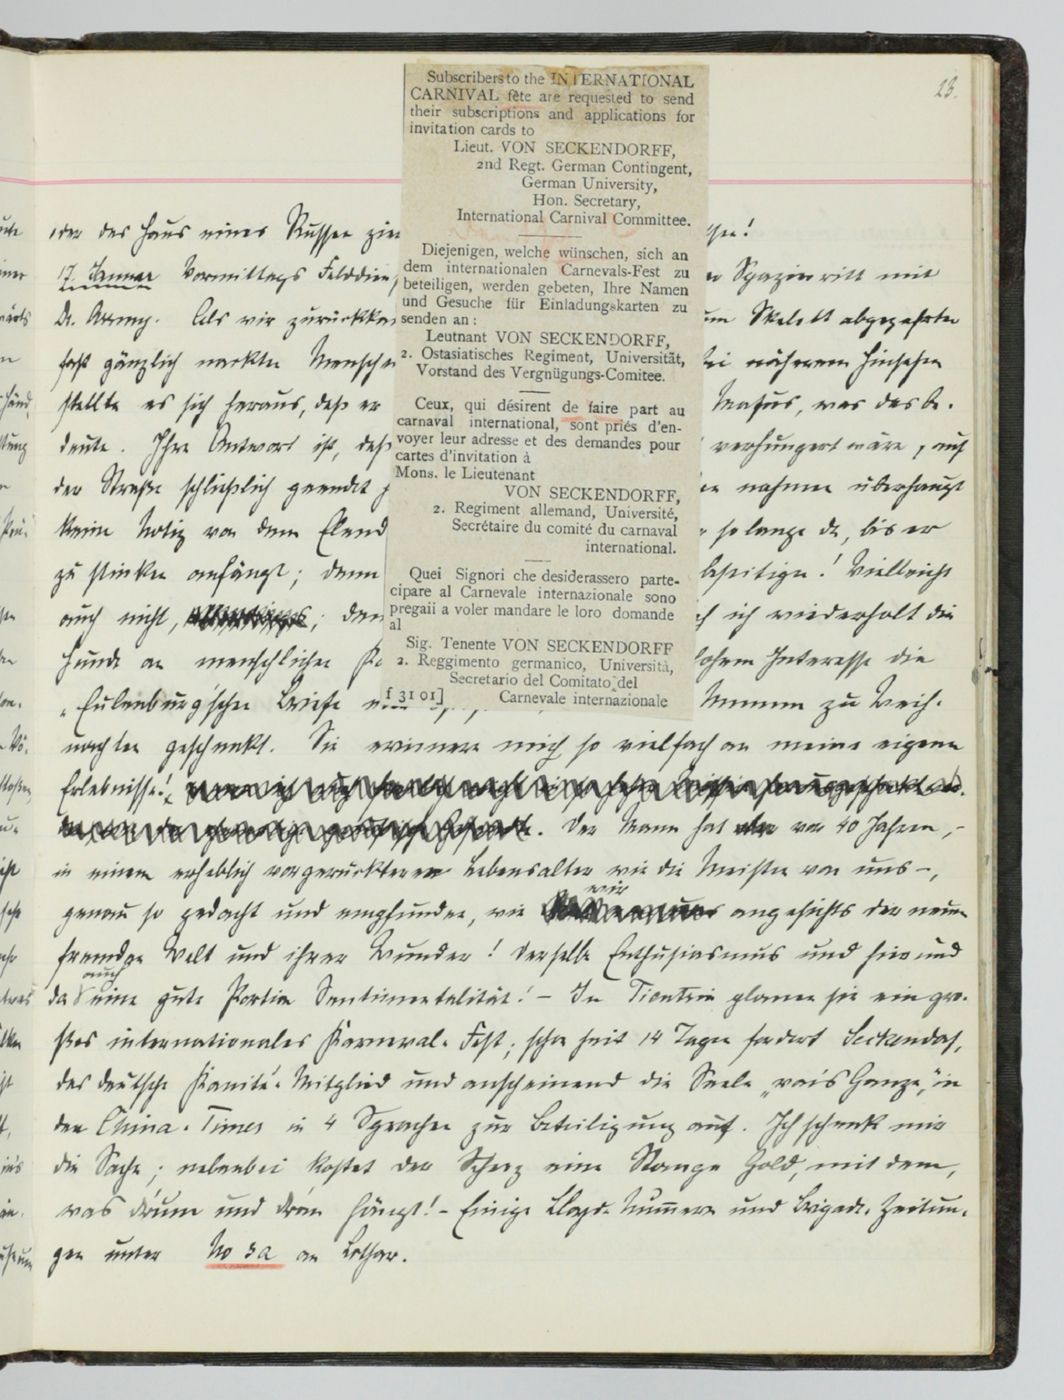 23.
Subscribers to the INTERNATIONAL
CARNIVAL fête are requested to send
their subscriptions and applications for
invitation cards to
Lieut. VON SECKENDORFF,
2nd Regt. German Contingent,
German University,
Hon. Secretary,
International Carnival Committee.
Diejenigen, welche wünschen, sich an
dem internationalen Carnevals-Fest zu
beteiligen, werden gebeten, Ihre Namen
und Gesuche für Einladungskarten zu
senden an:
Leutnant VON SECKENDORFF,
2. Ostasiatisches Regiment, Universität,
Vorstand des Vergnügungs-Comitee.
Ceux, qui désirent de faire part au
carnaval international, sont priés d'en-
voyer leur adresse et des demandes pour
cartes d'invitation à
Mons. le Lieutenant
VON SECKENDORFF,
2. Regiment allemand, Université,
Secrétaire du comité du carnaval
international.
Quei Signori che desiderassero parte-
cipare al Carnevale internazionale sono
pregaii a voler mandare le loro domande
al
Sig. Tenente VON SECKENDORFF
2. Reggimento germanico, Università,
Secretario del Comitato del
f 31 01] Carnevale internazionale
oder das Haus eines Russen
17. Januar Vormittags Felddien Spazierritt mit
Dr. Als wir zurückka Skelett abgezehrten
fast gänzlich nackten Mensche bei näherem Hinsehen
stellte es sich heraus, daß er Mafus, was das be-
deute. Ihre Antwort ist, daß verhungert wäre, auf
der Straße schließlich geendet nahmen überhaupt
keine Notiz von dem Elend so lange da, bis er
zu stinken anfängt; denn beseitigen! Vielleicht
auch nicht, ; den ich wiederholt die
Hunde an menschlichen hohem Interesse die
"Eulenburg'schen Briefe Mumm zu Weih-
nachten geschenkt. Sie erinnern mich so vielfach an meine eigenen
Erlebnisse!
Der Mann hat vor 40 Jahren, -
in einem erheblich vorgerückteren Lebensalter wie die Meisten von uns -,
genau so gedacht und empfunden, wie wir angesichts der neuen
fremden Welt und ihrer Wunder! Derselbe Enthusiasmus und hie und
da auch eine gute Portion Sentimentalität! - In Tientsin planen sie ein gro-
ßes internationales Karneval-Fest; schon seit 14 Tagen fordert Seckendorf,
das deutsche Komité-Mitglied und anscheinend die Seele "vons Ganze", in
den China-Times in 4 Sprachen zur Beteiligung auf. Ich schenk mir
die Sache; nebenbei kostet der Scherz eine Stange Gold, mit dem,
was drum und dran hängt! - Einige Lloyd-Nummern und Brigade-Zeitun-
gen unter No 3a an Lothar.